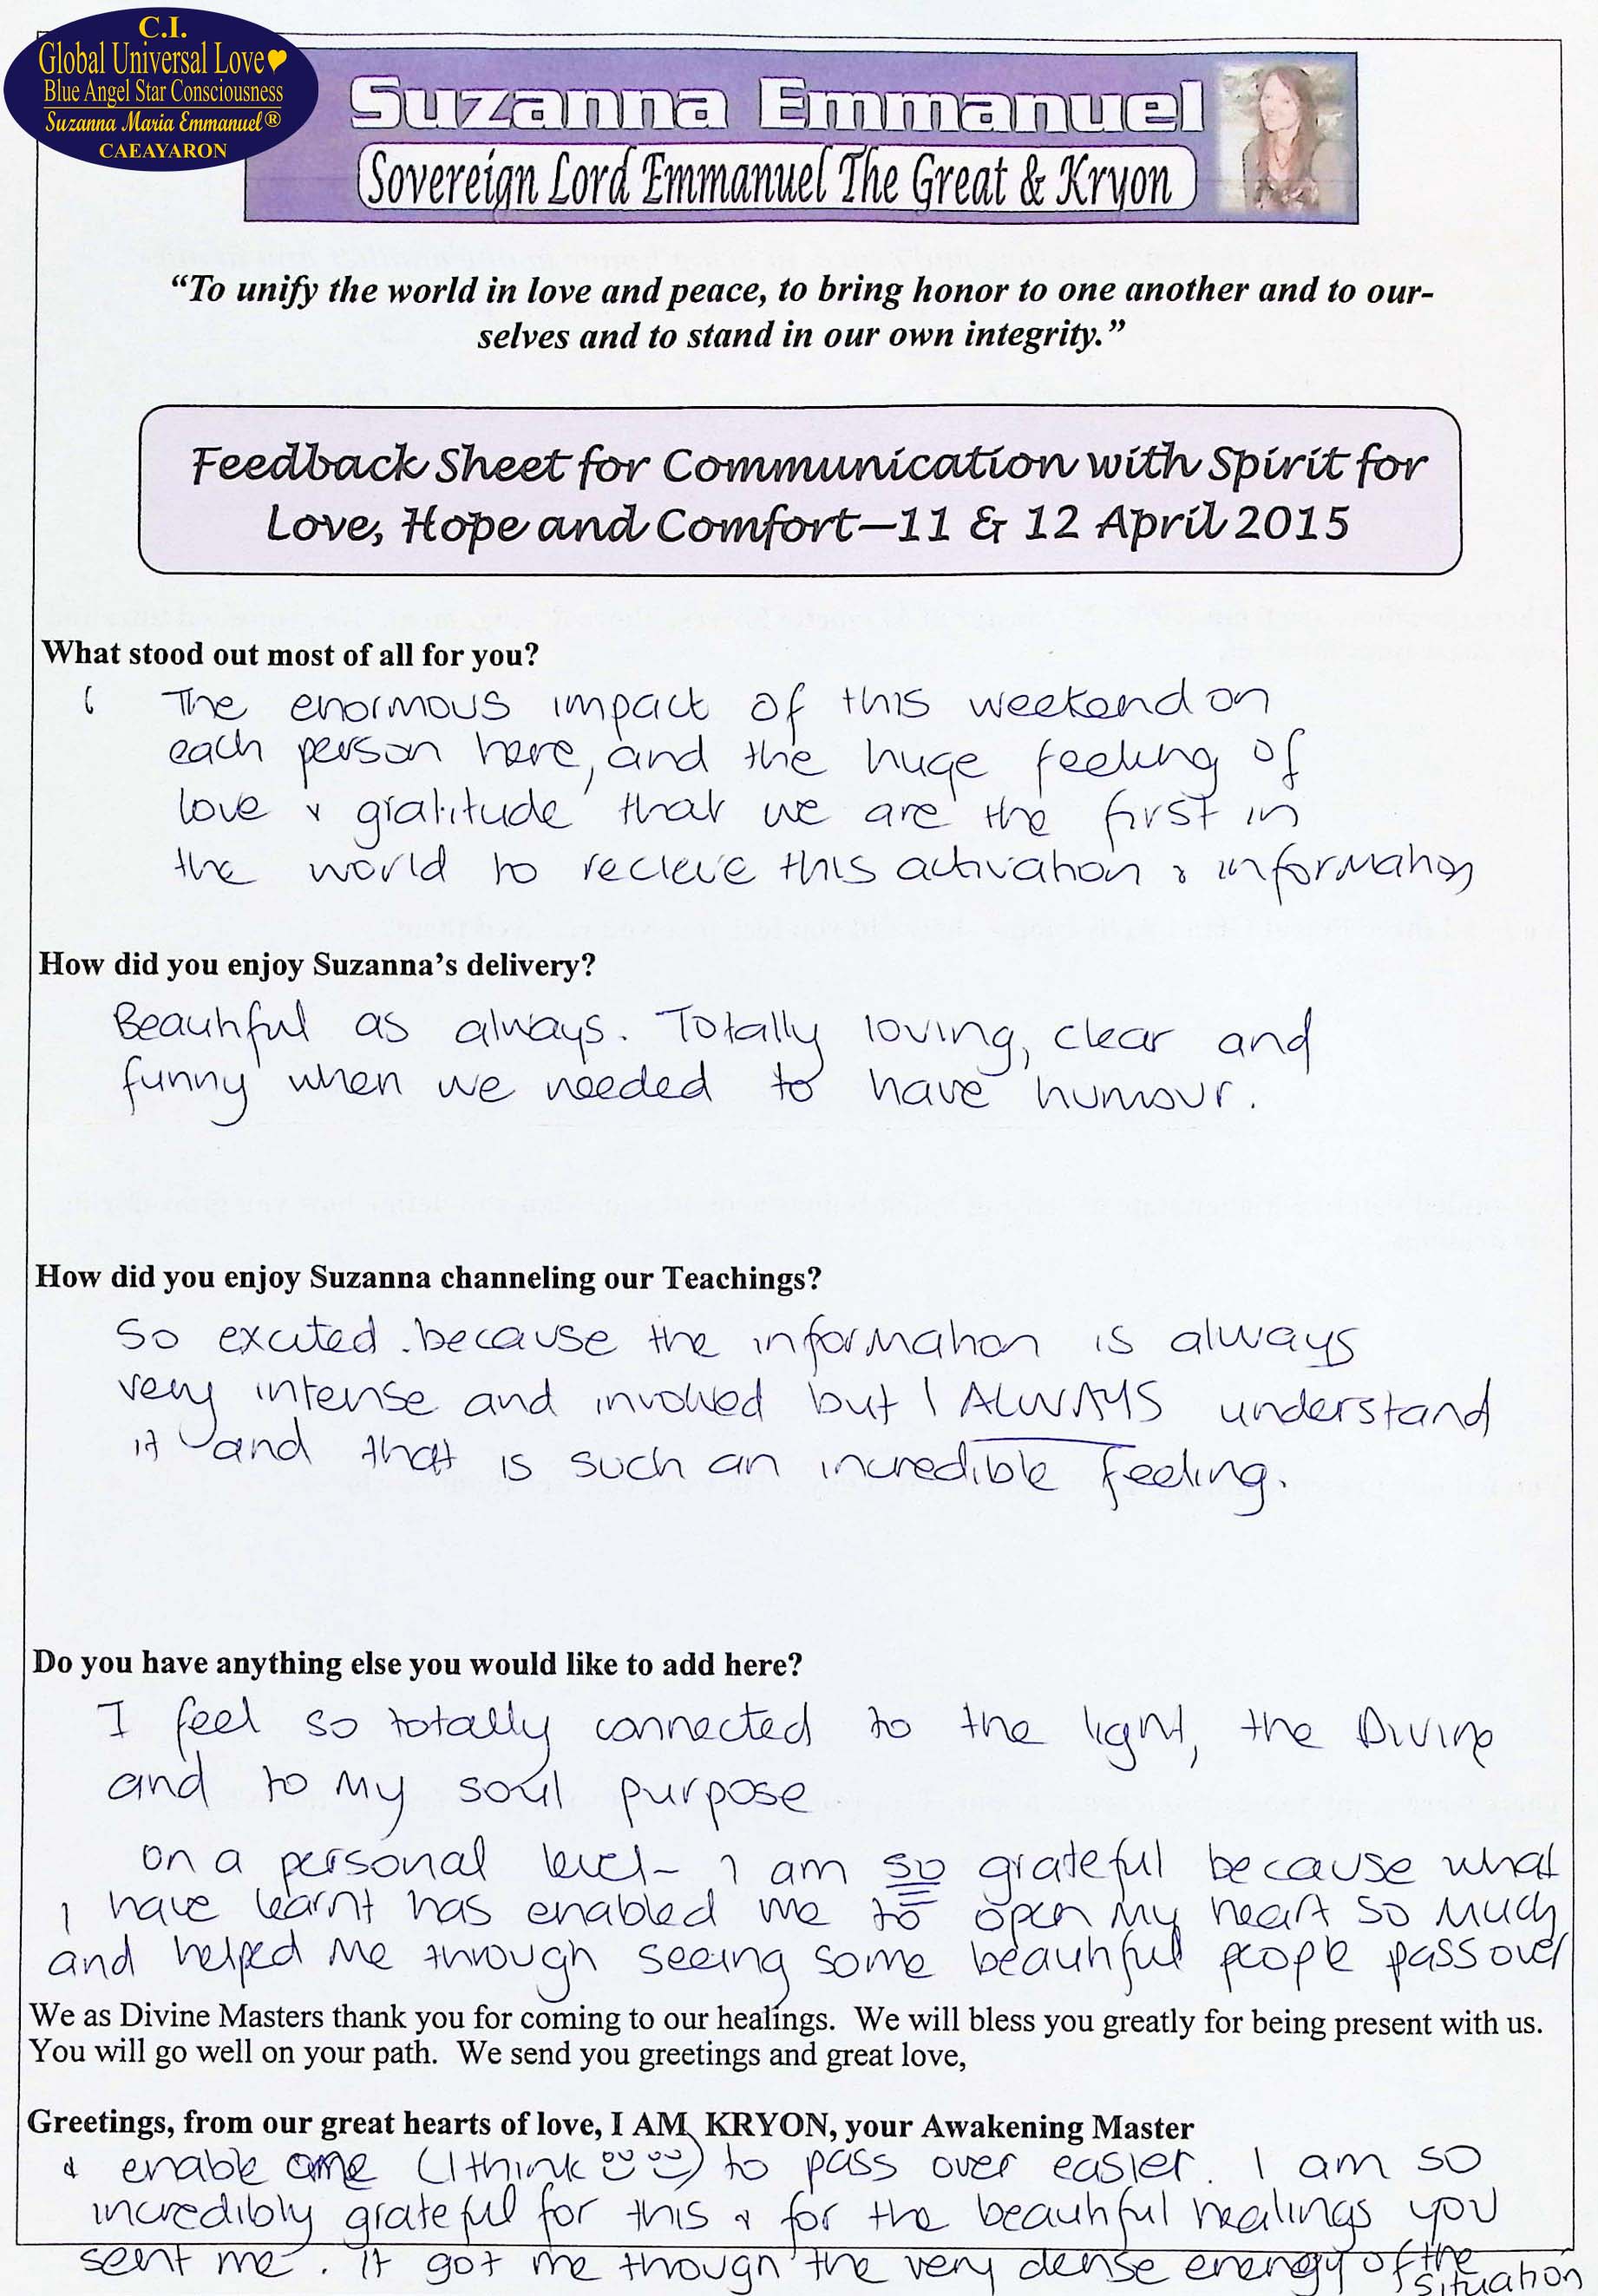 C.I.
Global Universal Love
Blue Angel Star Consciousness
Suzanna Maria Emmanuel®
CAEAYARON
Suzanna Emmanuel
Sovereign Lord Emmanuel The Great & Kryon
“To unify the world in love and peace, to bring honor to one another and to our-
selves and to stand in our own integrity.”
Feedback Sheet for Communication with Spirit for
Love, Hope and Comfort—11 & 12 April 2015
What stood out most of all for you?
The enormous impact of this weekend on
each person here, and the huge feeling of
love & gratitude that we are the first in
the world to recieve this activation & information
How did you enjoy Suzanna’s delivery?
Beautiful as always. Totally loving, clear and
funny when we needed to have humour.
How did you enjoy Suzanna channeling our Teachings?
So excited because the information is always
very intense and involved but I ALWAYS understand
it and that is such an incredible feeling.
Do you have anything else you would like to add here?
I feel so totally connected to the light, the Divine
and to my soul purpose
on a personal level - I am so grateful because what
I have learnt has enabled me to open my heart so much
and helped me through seeing some beautiful people pass over
We as Divine Masters thank you for coming to our healings. We will bless you greatly for being present with us.
You will go well on your path. We send you greetings and great love,
Greetings, from our great hearts of love, I AM KRYON, your Awakening Master
& enable me (I think) to pass over easier. I am so
incredibly grateful for this & for the beautiful healings you
sent me. It got me though the very dense energy of the
situation